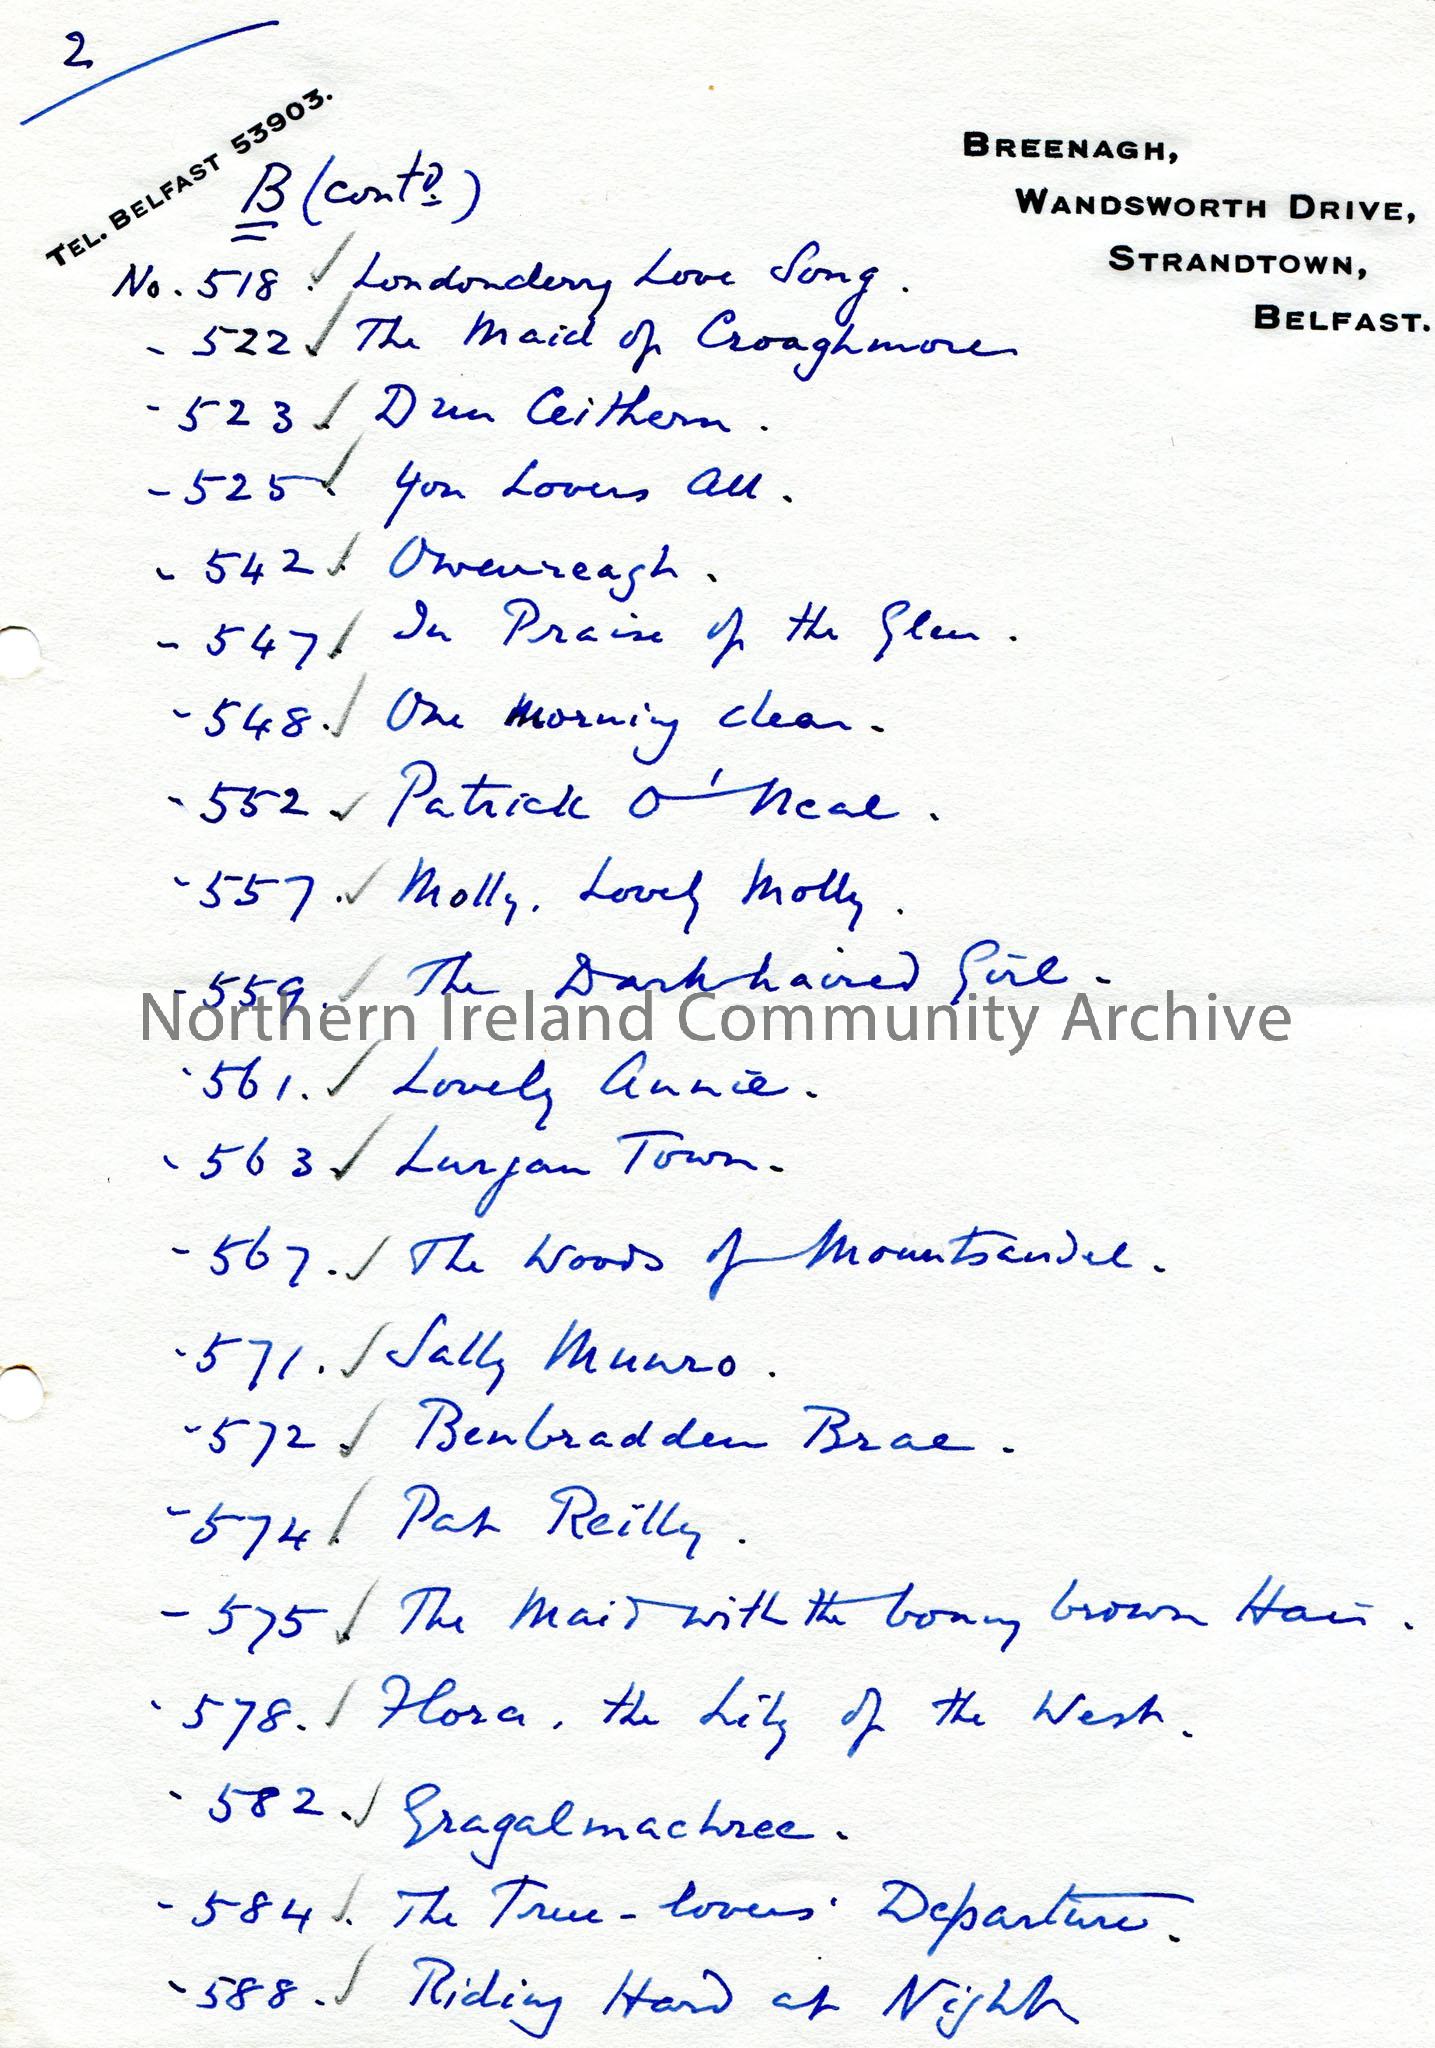 2
TEL. BELFAST 53903.
BREENAGH,
WANDSWORTH DRIVE,
STRANDTOWN,
BELFAST.
B (contd.)
No. 518 ✓ Londonderry Love Song.
- 522 ✓ The Maid of Croaghmore
- 523 ✓ Dun Ceithern.
- 525 ✓ You Lovers All.
- 542 ✓ Owenreagh.
- 547 ✓ In Praise of the Glen.
- 548. ✓ One Morning clear.
- 552 ✓ Patrick O'Neal.
- 557. ✓ Molly, Lovely Molly.
- 559. ✓ The Darkhaired Girl.
Northern Ireland Community Archive
- 561. ✓ Lovely Annie.
- 563 ✓ Lurgan Town.
- 567. ✓ The Woods of Mountsandel.
- 571. ✓ Sally Munro.
- 572 ✓ Benbradden Brae.
- 574 ✓ Pat Reilly.
- 575 ✓ The Maid with the bonny brown Hair.
- 578. ✓ Flora, the Lily of the West.
- 582. ✓ Gragalmachree.
- 584 ✓ The True-lovers' Departure.
- 588. ✓ Riding Hard at Night